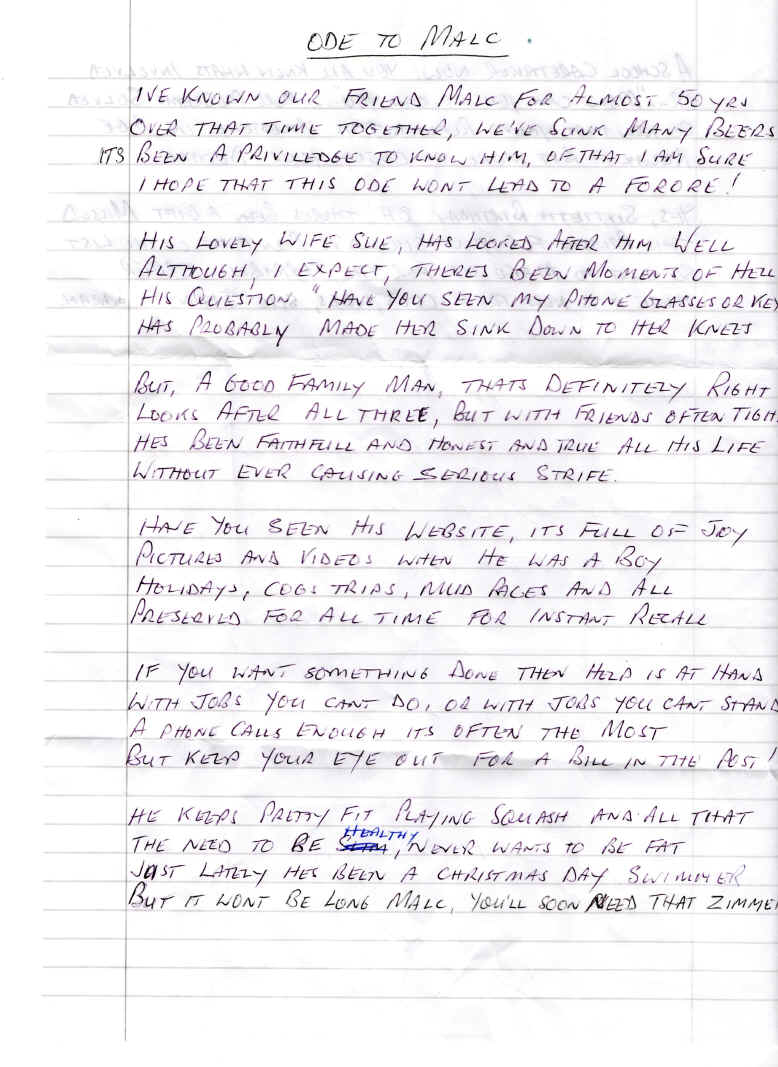 ODE TO MALC
IVE KNOWN OUR FRIEND MALC FOR ALMOST 50 YRS
OVER THAT TIME TOGETHER, WE'VE SUNK MANY BEERS
ITS BEEN A PRIVILEDGE TO KNOW HIM, OF THAT I AM SURE
I HOPE THAT THIS ODE WONT LEAD TO A FORORE!
HIS LOVELY WIFE SUE, HAS LOOKED AFTER HIM WELL
ALTHOUGH, I EXPECT, THERES BEEN MOMENTS OF HELL
HIS QUESTION "HAVE YOU SEEN MY PHONE GLASSES OR KEY
HAS PROBABLY MADE HER SINK DOWN TO HER KNEES
BUT, A GOOD FAMILY MAN, THATS DEFINITELY RIGHT
LOOKS AFTER ALL THREE, BUT WITH FRIENDS OFTEN TIGH
HES BEEN FAITHFULL AND HONEST AND TRUE ALL HIS LIFE
WITHOUT EVER CAUSING SERIOUS STRIFE.
HAVE YOU SEEN HIS WEBSITE, ITS FULL OF JOY
PICTURES AND VIDEOS WHEN HE WAS A BOY
HOLIDAYS, COGS TRIPS, MUD RACES AND ALL
PRESERVED FOR ALL TIME FOR INSTANT RECALL
IF YOU WANT SOMETHING DONE THEN HELP IS AT HAND
WITH JOBS YOU CANT DO, OR WITH JOBS YOU CANT STAND
A PHONE CALLS ENOUGH ITS OFTEN THE MOST
BUT KEEP YOUR EYE OUT FOR A BILL IN THE POST!
HE KEEPS PRETTY FIT PLAYING SQUASH AND ALL THAT
THE NEED TO BE HEALTHY, NEVER WANTS TO BE FAT
JUST LATELY HES BEEN A CHRISTMAS DAY SWIMMER
BUT IT WONT BE LONG MALC, YOU'LL SOON NEED THAT ZIMME